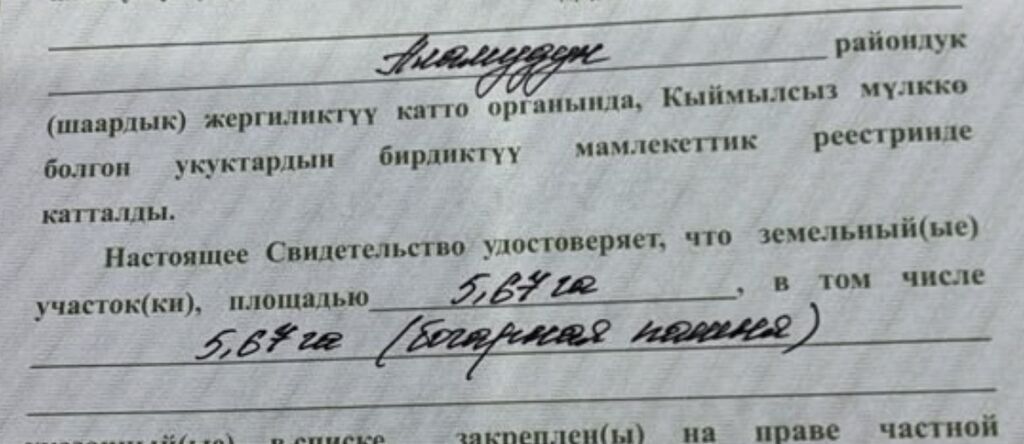 Аламудун райондук
(шаардык) жергиликтүү катто органында, Кыймылсыз мүлккө
болгон укуктардын бирдиктүү мамлекеттик реестринде
катталды.
Настоящее Свидетельство удостоверяет, что земельный(ые)
участок(ки), площадью 5,67 га, в том числе
5,67 га (богарная пашня)
в списке закреплен(ы) на праве частной